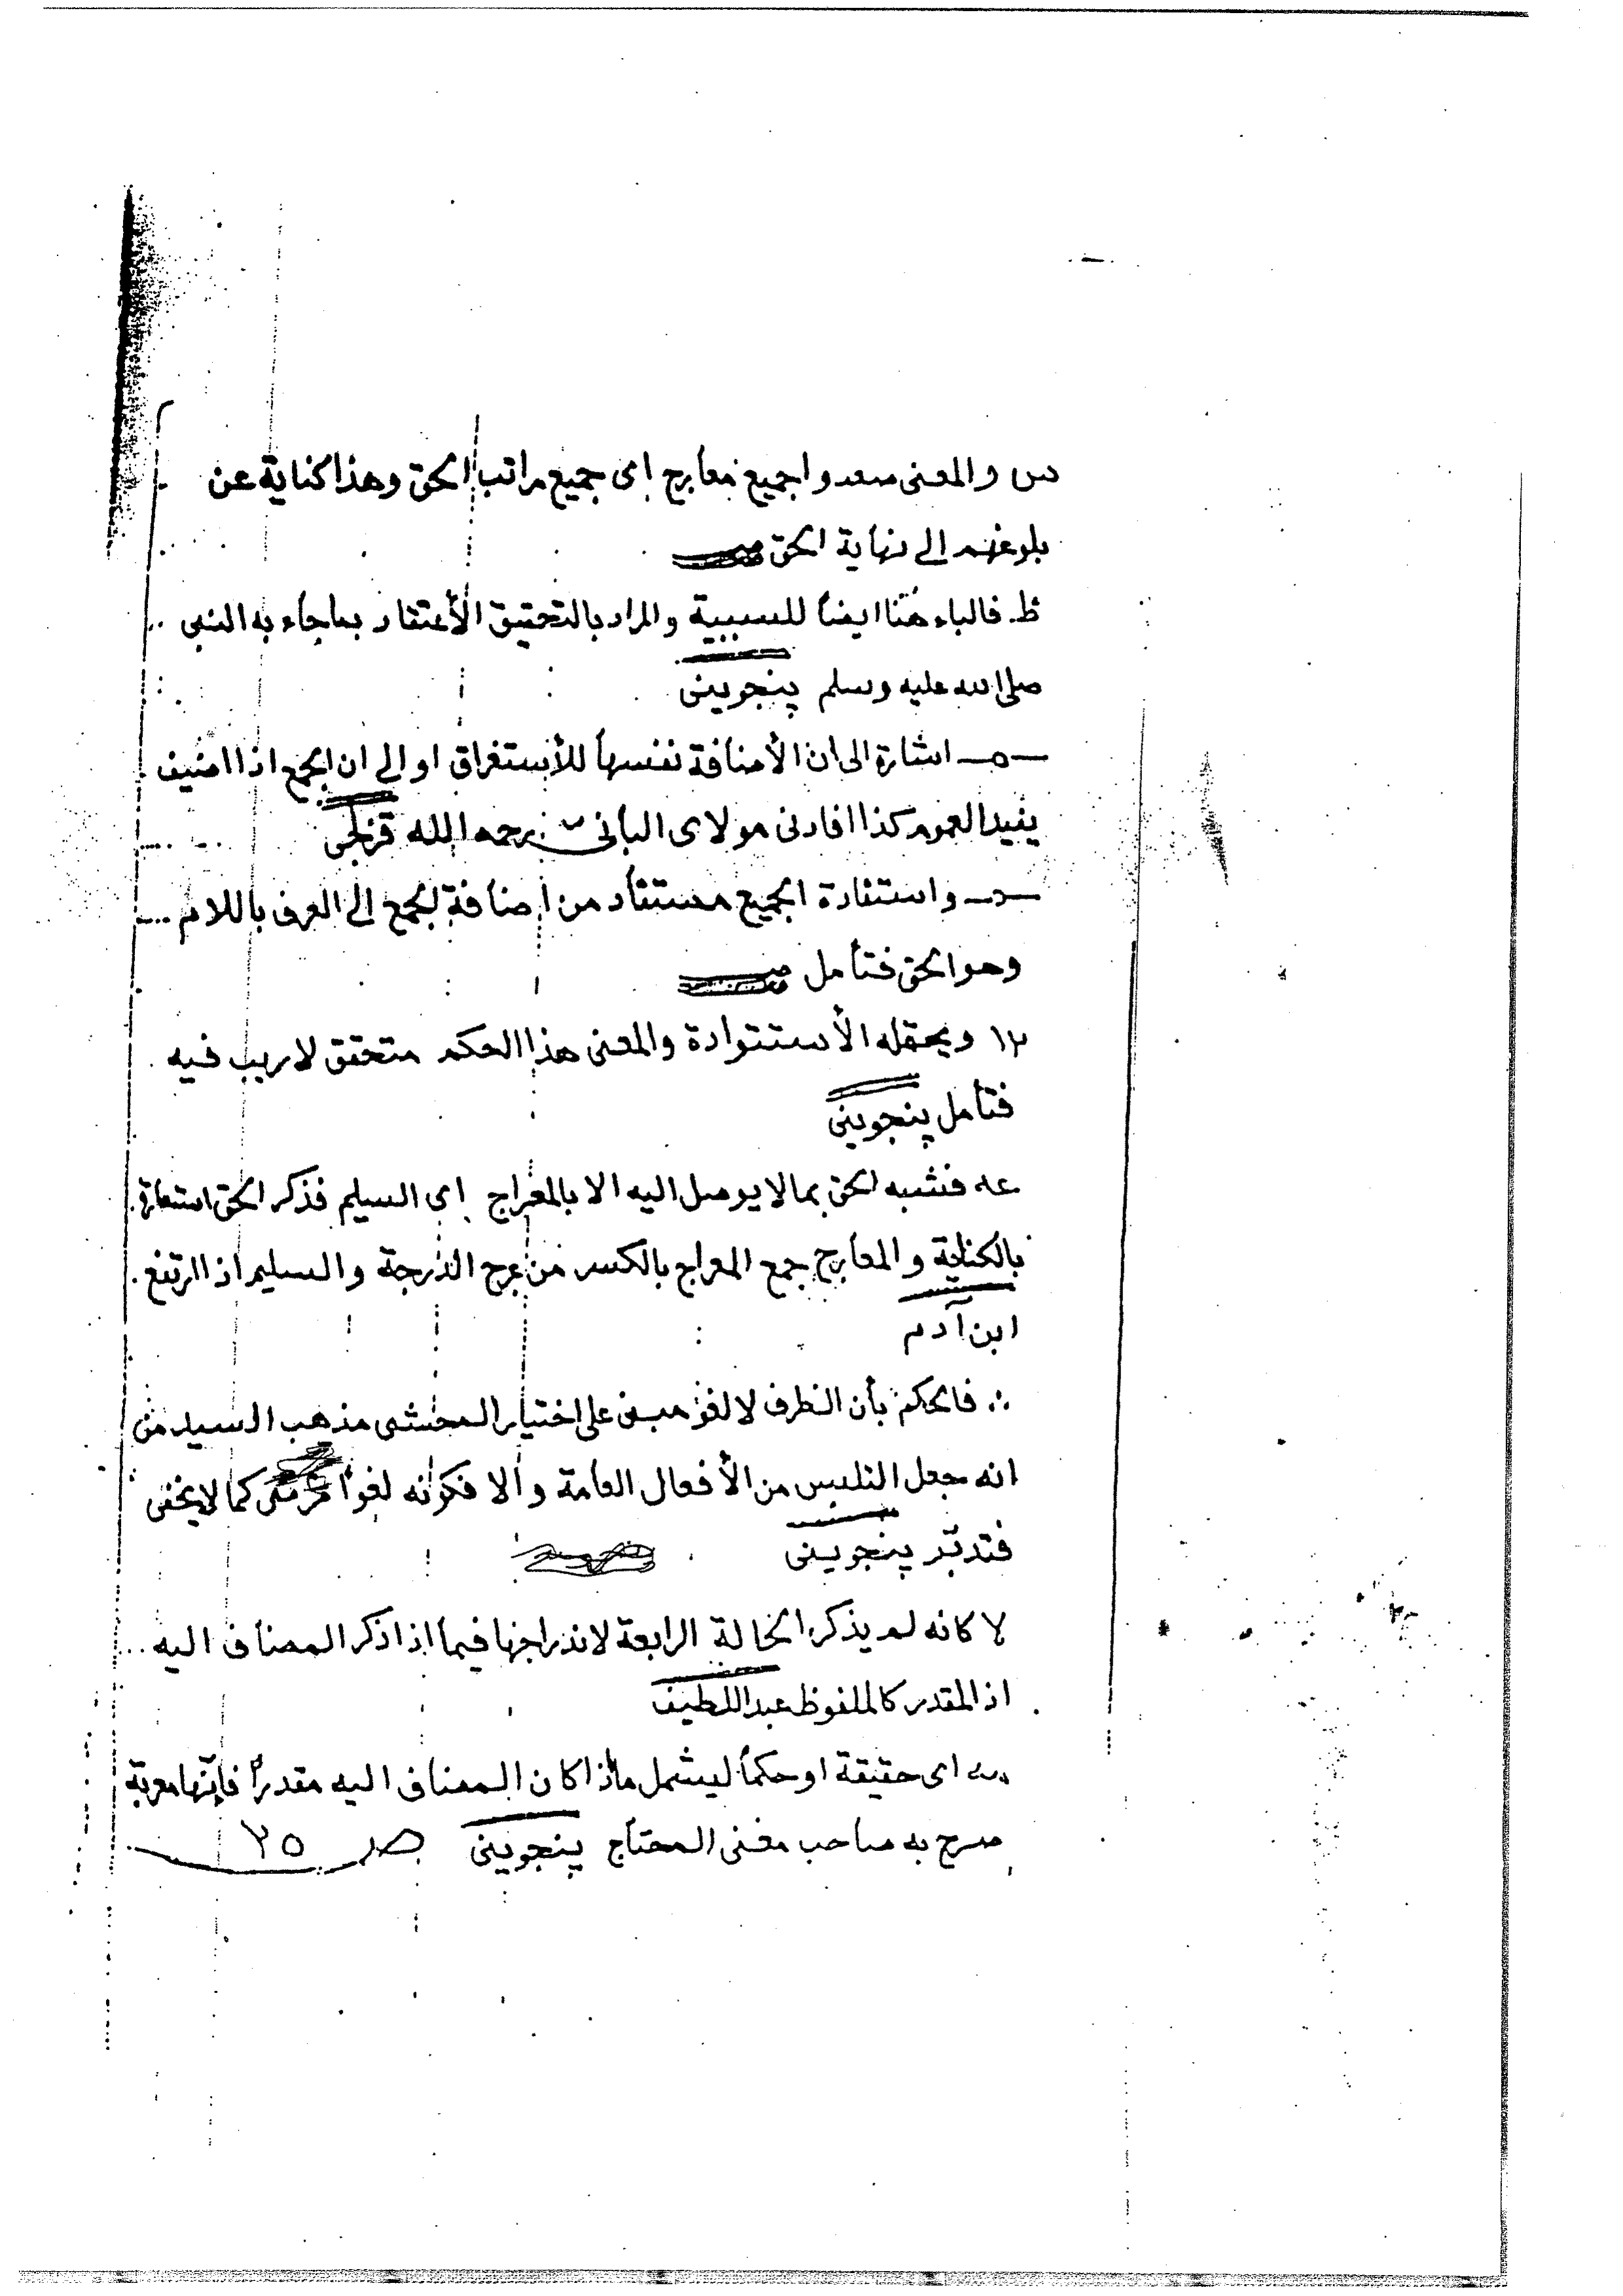 س والمعنى صعدوا جميع معارج اى جميع مراتب الحق وهذا كناية عن
بلوغهم الى نهاية الحق
ظ. فالباء هنا ايضاً للسببية والمراد بالتحقيق الأعتقاد بماجاء به النبى
صلى الله عليه وسلم پنجوينى
ـهـ اشارة الى ان الأضافة نفسها للأستغراق او الى ان الجمع اذا اضيف
يفيد العموم كذا افادنى مولاى البانى رحمه الله قزلجى
ـحـ واستفادة الجميع مستفاد من اضافة الجمع الى المعرف باللام
وهو الحق فتأمل
١٢ ويحتمله الأستتوادة والمعنى هذا الحكم متحقق لاريب فيه
فتأمل پنجوينى
عه فشبه الحق بمالا يوصل اليه الا بالمعراج اى السليم فذكر الحق استعارة
بالكناية والمعارج جمع المعراج بالكسر من عرج الدرجة والسليم اذا ارتفع
ابن آدم
∴ فالحكم بأن الظرف لالغو مبنى على اختيار المحشى مذهب السيد من
انه جعل التلبس من الأفعال العامة والا فكونه لغواً كمالا يخفى
فتدبّر پنجوينى
لا كانه لم يذكر الحالة الرابعة لاندراجها فيما اذا ذكر المضاف اليه
اذ المقدر كالملفوظ عبد اللطيف
سه اى حقيقة او حكماً ليشمل ماذا كان المضاف اليه مقدراً فإنها معربة
صرح به صاحب مغنى المحتاج پنجوينى صـ ٢٥